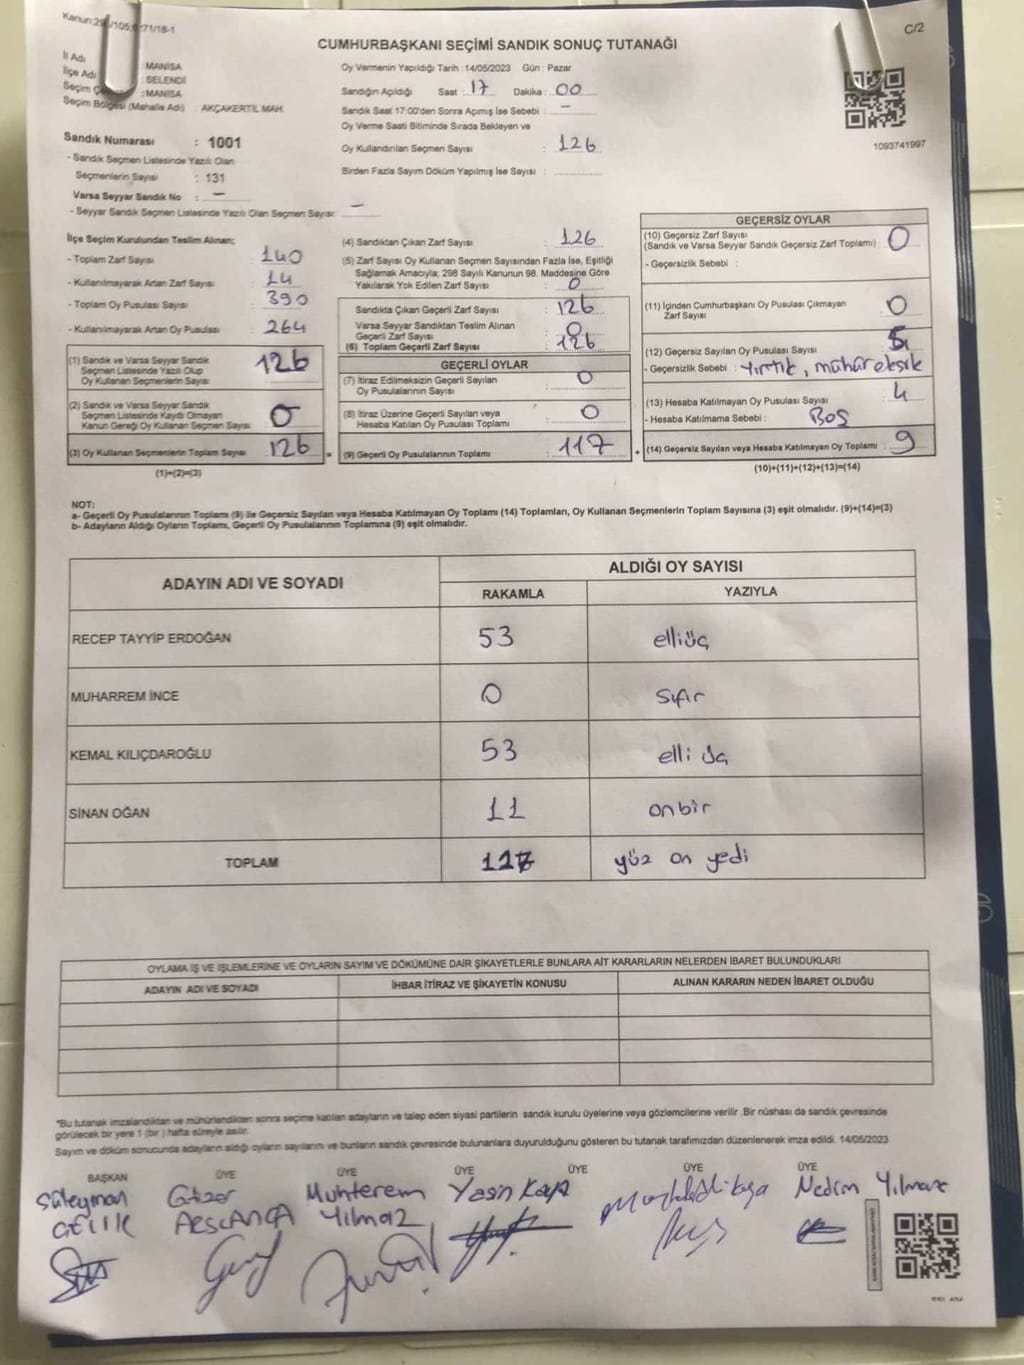 Kanun:298/105,
271/18-1
C/2
CUMHURBAŞKANI SEÇİMİ SANDIK SONUÇ TUTANAĞI
İl Adı : MANİSA
İlçe Adı : SELENDİ
Seçim Ç : MANİSA
Seçim Bölgesi (Mahalle Adı) : AKÇAKERTİL MAH.
Sandık Numarası : 1001
- Sandık Seçmen Listesinde Yazılı Olan
Seçmenlerin Sayısı : 131
Varsa Seyyar Sandık No : —
- Seyyar Sandık Seçmen Listesinde Yazılı Olan Seçmen Sayısı: —
Oy Vermenin Yapıldığı Tarih :14/05/2023 Gün : Pazar
Sandığın Açıldığı Saat : 17 Dakika : 00
Sandık Saat 17:00'den Sonra Açımış İse Sebebi : —
Oy Verme Saati Bitiminde Sırada Bekleyen ve
Oy Kullandırılan Seçmen Sayısı : 126
Birden Fazla Sayım Döküm Yapılmış İse Sayısı :
1093741997
İlçe Seçim Kurulundan Teslim Alınan;
- Toplam Zarf Sayısı : 140
- Kullanılmayarak Artan Zarf Sayısı : 14
- Toplam Oy Pusulası Sayısı : 390
- Kullanılmayarak Artan Oy Pusulası : 264
(1) Sandık ve Varsa Seyyar Sandık
Seçmen Listesinde Yazılı Olup
Oy Kullanan Seçmenlerin Sayısı 126
(2) Sandık ve Varsa Seyyar Sandık
Seçmen Listesinde Kayıtlı Olmayan
Kanun Gereği Oy Kullanan Seçmen Sayısı 0
(3) Oy Kullanan Seçmenlerin Toplam Sayısı 126
(1)+(2)=(3)
(4) Sandıktan Çıkan Zarf Sayısı : 126
(5) Zarf Sayısı Oy Kullanan Seçmen Sayısından Fazla İse, Eşitliği
Sağlamak Amacıyla; 298 Sayılı Kanunun 98. Maddesine Göre
Yakılarak Yok Edilen Zarf Sayısı : 0
Sandıkta Çıkan Geçerli Zarf Sayısı : 126
Varsa Seyyar Sandıktan Teslim Alınan
Geçerli Zarf Sayısı : 0
(6) Toplam Geçerli Zarf Sayısı : 126
GEÇERLİ OYLAR
(7) İtiraz Edilmeksizin Geçerli Sayılan
Oy Pusulalarının Sayısı : 0
(8) İtiraz Üzerine Geçerli Sayılan veya
Hesaba Katılan Oy Pusulası Toplamı : 0
= (9) Geçerli Oy Pusulalarının Toplamı : 117 +
GEÇERSİZ OYLAR
(10) Geçersiz Zarf Sayısı
(Sandık ve Varsa Seyyar Sandık Geçersiz Zarf Toplamı) : 0
- Geçersizlik Sebebi :
(11) İçinden Cumhurbaşkanı Oy Pusulası Çıkmayan
Zarf Sayısı : 0
(12) Geçersiz Sayılan Oy Pusulası Sayısı : 5
- Geçersizlik Sebebi : Yırtık, mühür eksik
(13) Hesaba Katılmayan Oy Pusulası Sayısı : 4
- Hesaba Katılmama Sebebi : BOŞ
(14) Geçersiz Sayılan veya Hesaba Katılmayan Oy Toplamı : 9
(10)+(11)+(12)+(13)=(14)
NOT:
a- Geçerli Oy Pusulalarının Toplamı (9) ile Geçersiz Sayılan veya Hesaba Katılmayan Oy Toplamı (14) Toplamları, Oy Kullanan Seçmenlerin Toplam Sayısına (3) eşit olmalıdır. (9)+(14)=(3)
b- Adayların Aldığı Oyların Toplamı, Geçerli Oy Pusulalarının Toplamına (9) eşit olmalıdır.
ADAYIN ADI VE SOYADI
ALDIĞI OY SAYISI
RAKAMLA YAZIYLA
RECEP TAYYİP ERDOĞAN 53 elliüç
MUHARREM İNCE 0 Sıfır
KEMAL KILIÇDAROĞLU 53 elli üç
SİNAN OĞAN 11 onbir
TOPLAM 117 yüz on yedi
OYLAMA İŞ VE İŞLEMLERİNE VE OYLARIN SAYIM VE DÖKÜMÜNE DAİR ŞİKAYETLERLE BUNLARA AİT KARARLARIN NELERDEN İBARET BULUNDUKLARI
ADAYIN ADI VE SOYADI İHBAR İTİRAZ VE ŞİKAYETİN KONUSU ALINAN KARARIN NEDEN İBARET OLDUĞU
*Bu tutanak imzalandıktan ve mühürlendikten sonra seçime katılan adayların ve talep eden siyasi partilerin sandık kurulu üyelerine veya gözlemcilerine verilir .Bir nüshası da sandık çevresinde
görülecek bir yere 1 (bir ) hafta süreyle asılır.
Sayım ve döküm sonucunda adayların aldığı oyların sayılarını ve bunların sandık çevresinde bulunanlara duyurulduğunu gösteren bu tutanak tarafımızdan düzenlenerek imza edildi. 14/05/2023
BAŞKAN ÜYE ÜYE ÜYE ÜYE ÜYE ÜYE
Süleyman Muhterem Yasin Kaya Nedim Yılmaz
Yılmaz